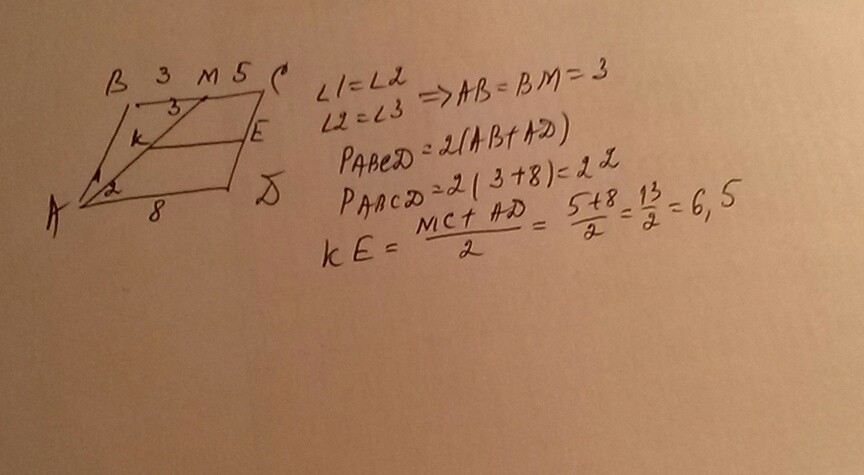 B 3 M 5 C
3
K E
2
A 8 D
∠1=∠2
∠2=∠3 => AB=BM=3
PABCD=2(AB+AD)
PABCD=2(3+8)=22
KE = MC+AD/2 = 5+8/2 = 13/2 = 6,5